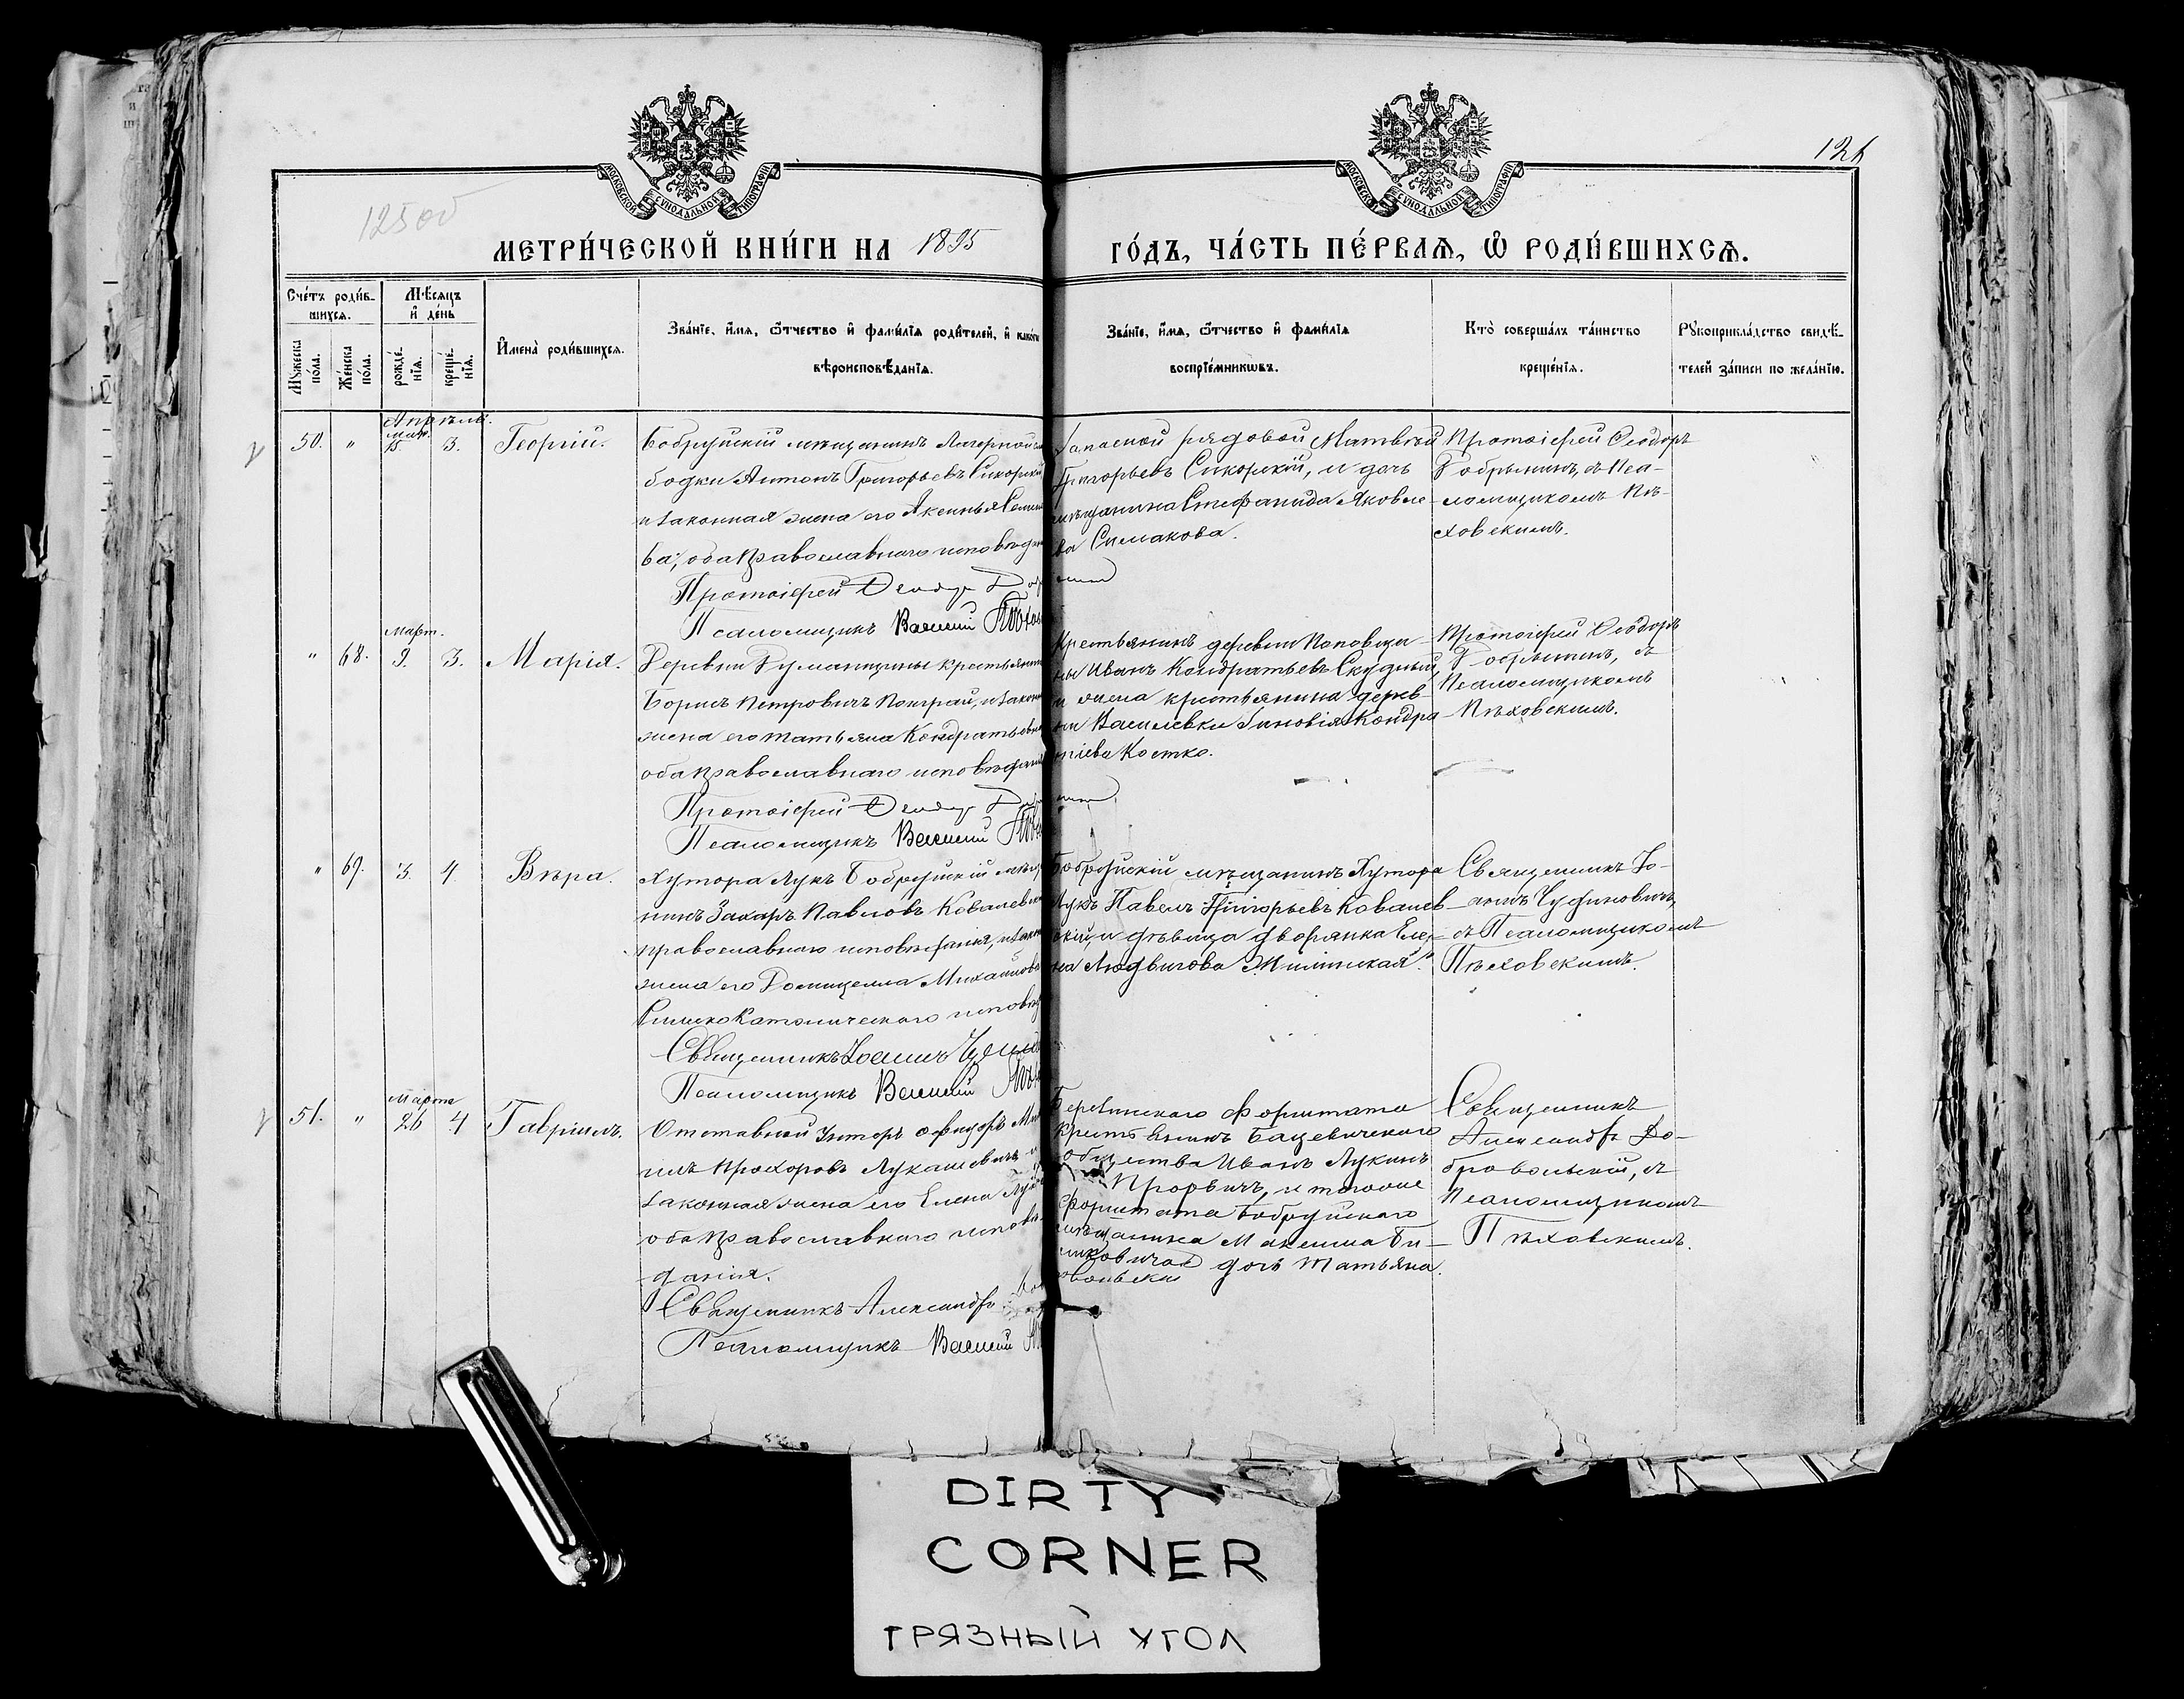 126
12500
МОСКОВСКОЙ СУНОДАЛЬНОЙ ТИПОГРАФІИ
МОСКОВСКОЙ СУНОДАЛЬНОЙ ТИПОГРАФІИ
МЕТРИ́ЧЕСКОЙ КНИ́ГИ НА 1895 ГО́ДЪ, ЧА́СТЬ ПЕ́РВАѦ, Ѿ РОДИ́ВШИХСѦ.
Сче́тъ роди́в-
шихсѧ.
Мꙋ́жеска по́ла.
Же́нска по́ла.
Мѣ́сѧцъ
и҆ де́нь
рожде́-
нїѧ.
креще́-
нїѧ.
И҆мена̀ роди́вшихсѧ.
Зва́нїе, и҆́мѧ, ѻ҆́тчество и҆ фами́лїѧ роди́телей, и҆ како́гѡ
вѣроисповѣ́данїѧ.
Зва́нїе, и҆́мѧ, ѻ҆́тчество и҆ фами́лїѧ
воспрїе́мникѡвъ.
Кто̀ соверша́лъ та́инство
креще́нїѧ.
Рꙋкоприкла́дство свидѣ́-
телей за́писи по жела́нїю.
Апрѣль.
50. " 3. Георгій.
Бобруйскій мѣщанинъ
бодки Антонъ Григорьевъ Сикорскій
и законная жена его Аксинья
ва; оба православнаго исповѣдан
Протоіерей Ѳеодор
Псаломщикъ Василій
Запасной рядовой Матвѣй
Григорьевъ Сикорскій, и дочь
мѣщанина Стефанида Яковле
ва Симакова.
Протоіерей Ѳеодоръ
Добрынинъ, съ Пса-
ломщикомъ Пѣ-
ховскимъ.
Март.
" 68. 9. 3. Марія.
Деревни Думанщины крестьянин
Борисъ Петровичъ и закон
жена его Татьяна Кондратьевна
оба православнаго исповѣдані
Протоіерей Ѳеодор
Псаломщикъ Василій
Крестьянинъ деревни Поповщи
ны Иванъ Кондратьевъ Скудный,
и жена крестьянина дерев-
ни Василевки Зиновія Кондра
тіева Костко.
Протоіерей Ѳеодоръ
Добрынинъ, съ
Псаломщикомъ
Пѣховскимъ.
" 69. 3. 4. Вѣра.
Хутора Лукъ Бобруйскій мѣщ
нинъ Захаръ Павловъ Ковалевскі
православнаго исповѣданія, и зако
жена его Домицелла Михайлова
Римско Католическаго исповѣд
Священникъ Іоаннъ
Псаломщикъ Василій
Бобруйскій мѣщанинъ Хутора
Лукъ Павелъ Григорьевъ Ковалев
скій, и дѣвица дворянка Еле-
на Людвигова
Священникъ Іо-
аннъ
съ Псаломщикомъ
Пѣховскимъ.
Марта
51. " 26 4 Гавріилъ.
Отставной Унтеръ офицеръ
илъ Прохоровъ Лукашевичъ и
законная жена его Елена
оба православнаго исповѣ-
данія.
Священникъ Александръ
Псаломщикъ Василій
форштата
Крестьянинъ Бацевичскаго
общества Иванъ Лукинъ
и того же
форштата Бобруйскаго
мѣщанина Максима
дочь Татьяна.
Священникъ
Александръ До-
бровольскій, съ
Псаломщикомъ
Пѣховскимъ.
DIRTY
CORNER
ГРЯЗНЫЙ УГОЛ